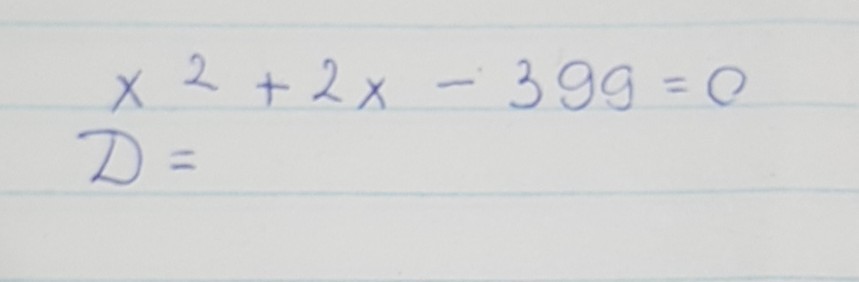 x² + 2x - 399 = 0
D =